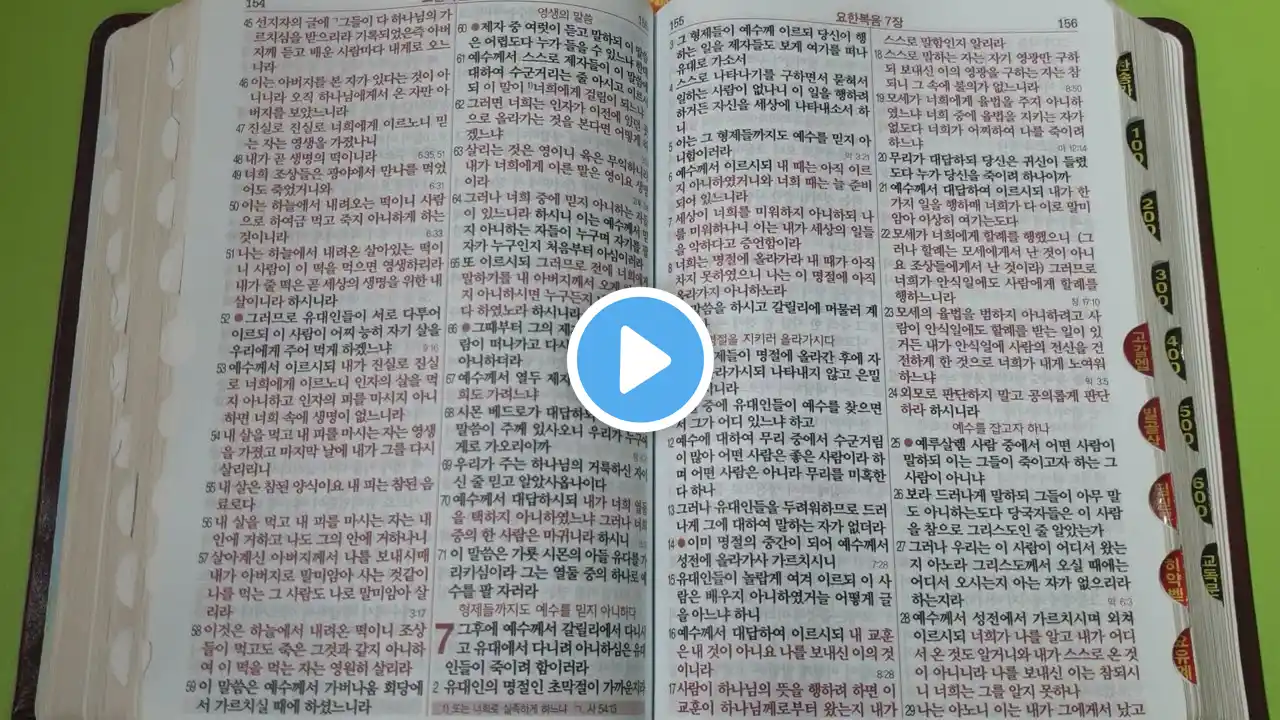 154
45 선지자의 글에 그들이 다 하나님의 가
르치심을 받으리라 기록되었은즉 아버
지께 듣고 배운 사람마다 내게로 오느
니라
46 이는 아버지를 본 자가 있다는 것이 아
니니라 오직 하나님에게서 온 자만 아
버지를 보았느니라
47 진실로 진실로 너희에게 이르노니 믿
는 자는 영생을 가졌나니
48 내가 곧 생명의 떡이니라
6:35,51
49 너희 조상들은 광야에서 만나를 먹었
어도 죽었거니와
6:31
50 이는 하늘에서 내려오는 떡이니 사람
으로 하여금 먹고 죽지 아니하게 하는
것이니라
6:33
51 나는 하늘에서 내려온 살아있는 떡이
니 사람이 이 떡을 먹으면 영생하리라
내가 줄 떡은 곧 세상의 생명을 위한 내
살이니라 하시니라
52 ●그러므로 유대인들이 서로 다투어
이르되 이 사람이 어찌 능히 자기 살을
우리에게 주어 먹게 하겠느냐
9:16
53 예수께서 이르시되 내가 진실로 진실
로 너희에게 이르노니 인자의 살을 먹
지 아니하고 인자의 피를 마시지 아니
하면 너희 속에 생명이 없느니라
54 내 살을 먹고 내 피를 마시는 자는 영생
을 가졌고 마지막 날에 내가 그를 다시
살리리니
55 내 살은 참된 양식이요 내 피는 참된 음
료로다
56 내 살을 먹고 내 피를 마시는 자는 내
안에 거하고 나도 그의 안에 거하나니
57 살아계신 아버지께서 나를 보내시매
내가 아버지로 말미암아 사는 것같이
나를 먹는 그 사람도 나로 말미암아 살
리라
3:17
58 이것은 하늘에서 내려온 떡이니 조상
들이 먹고도 죽은 그것과 같지 아니하
여 이 떡을 먹는 자는 영원히 살리라
59 이 말씀은 예수께서 가버나움 회당에
서 가르치실 때에 하셨느니라
영생의 말씀
60 ●제자 중 여럿이 듣고 말하되 이 말씀
은 어렵도다 누가 들을 수 있느냐 한대
61 예수께서 스스로 제자들이 이 말씀에
대하여 수군거리는 줄 아시고 이르시
되 이 말이 너희에게 걸림이 되느냐
62 그러면 너희는 인자가 이전에 있던
으로 올라가는 것을 본다면 어떻게
겠느냐
63 살리는 것은 영이니 육은 무익하니라
내가 너희에게 이른 말은 영이요 생명
이라
64 그러나 너희 중에 믿지 아니하는 자들
이 있느니라 하시니 이는 예수께서 믿
지 아니하는 자들이 누구며 자기를 팔
자가 누구인지 처음부터 아심이러라
65 또 이르시되 그러므로 전에 너희에게
말하기를 내 아버지께서 오게
지 아니하시면 누구든지
다 하였노라 하시니라
66 ●그때부터 그의 제
람이 떠나가고 다시
아니하더라
67 예수께서 열두 제자
희도 가려느냐
68 시몬 베드로가 대답하되
말씀이 주께 있사오니 우리가 누구
게로 가오리이까
69 우리가 주는 하나님의 거룩하신 자이
신 줄 믿고 알았사옵나이다
70 예수께서 대답하시되 내가 너희 열둘
을 택하지 아니하였느냐 그러나 너희
중의 한 사람은 마귀니라 하시니
71 이 말씀은 가룟 시몬의 아들 유다를 가
리키심이라 그는 열둘 중의 하나로 예
수를 팔 자러라
형제들까지도 예수를 믿지 아니하다
7 그후에 예수께서 갈릴리에서 다니시
고 유대에서 다니려 아니하심은 유대
인들이 죽이려 함이러라
2 유대인의 명절인 초막절이 가까운지라
1) 또는 너희로 실족하게 하느냐 ㄱ. 사 54:13
155 요한복음 7장 156
3 그 형제들이 예수께 이르되 당신이 행
하는 일을 제자들도 보게 여기를 떠나
유대로 가소서
4 스스로 나타나기를 구하면서 묻혀서
일하는 사람이 없나니 이 일을 행하려
하거든 자신을 세상에 나타내소서 하
니
5 이는 그 형제들까지도 예수를 믿지 아
니함이러라
막 3:21
6 예수께서 이르시되 내 때는 아직 이르
지 아니하였거니와 너희 때는 늘 준비
되어 있느니라
7 세상이 너희를 미워하지 아니하되 나
를 미워하나니 이는 내가 세상의 일들
을 악하다고 증언함이라
8 너희는 명절에 올라가라 내 때가 아직
차지 못하였으니 나는 이 명절에 아직
올라가지 아니하노라
말씀을 하시고 갈릴리에 머물러 계
명절을 지키러 올라가시다
형제들이 명절에 올라간 후에 자
라가시되 나타내지 않고 은밀
니라
중에 유대인들이 예수를 찾으면
서 그가 어디 있느냐 하고
12 예수에 대하여 무리 중에서 수군거림
이 많아 어떤 사람은 좋은 사람이라 하
며 어떤 사람은 아니라 무리를 미혹한
다 하나
13 그러나 유대인들을 두려워하므로 드러
나게 그에 대하여 말하는 자가 없더라
14 ●이미 명절의 중간이 되어 예수께서
성전에 올라가사 가르치시니
7:28
15 유대인들이 놀랍게 여겨 이르되 이 사
람은 배우지 아니하였거늘 어떻게 글
을 아느냐 하니
16 예수께서 대답하여 이르시되 내 교훈
은 내 것이 아니요 나를 보내신 이의 것
이니라
8:28
17 사람이 하나님의 뜻을 행하려 하면 이
교훈이 하나님께로부터 왔는지 내가
스스로 말함인지 알리라
18 스스로 말하는 자는 자기 영광만 구하
되 보내신 이의 영광을 구하는 자는 참
되니 그 속에 불의가 없느니라
8:50
19 모세가 너희에게 율법을 주지 아니하
였느냐 너희 중에 율법을 지키는 자가
없도다 너희가 어찌하여 나를 죽이려
하느냐
마 12:14
20 무리가 대답하되 당신은 귀신이 들렸
도다 누가 당신을 죽이려 하나이까
21 예수께서 대답하여 이르시되 내가 한
가지 일을 행하매 너희가 다 이로 말미
암아 이상히 여기는도다
22 모세가 너희에게 할례를 행했으니 (그
러나 할례는 모세에게서 난 것이 아니
요 조상들에게서 난 것이라) 그러므로
너희가 안식일에도 사람에게 할례를
행하느니라
창 17:10
23 모세의 율법을 범하지 아니하려고 사
람이 안식일에도 할례를 받는 일이 있
거든 내가 안식일에 사람의 전신을 건
전하게 한 것으로 너희가 내게 노여워
하느냐
막 3:5
24 외모로 판단하지 말고 공의롭게 판단
하라 하시니라
예수를 잡고자 하나
25 ●예루살렘 사람 중에서 어떤 사람이
말하되 이는 그들이 죽이고자 하는 그
사람이 아니냐
26 보라 드러나게 말하되 그들이 아무 말
도 아니하는도다 당국자들은 이 사람
을 참으로 그리스도인 줄 알았는가
27 그러나 우리는 이 사람이 어디서 왔는
지 아노라 그리스도께서 오실 때에는
어디서 오시는지 아는 자가 없으리라
하는지라
막 6:3
28 예수께서 성전에서 가르치시며 외쳐
이르시되 너희가 나를 알고 내가 어디
서 온 것도 알거니와 내가 스스로 온 것
이 아니니라 나를 보내신 이는 참되시
니 너희는 그를 알지 못하나
29 나는 아노니 이는 내가 그에게서 났고
찬송가
100
200
300
400
500
600
교독문
고갈엡
빌골살
히약벧
요유계